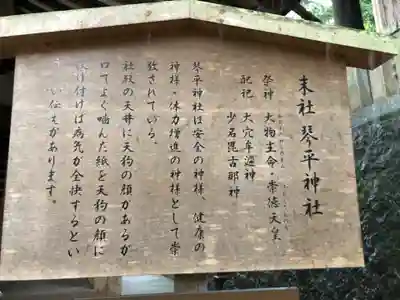 末社 琴平神社
祭神 大物主命・崇徳天皇
配祀 大穴牟遅神
少名毘古那神
琴平神社は安全の神様、健康の
神様・体力増進の神様として崇
敬されている。
社殿の天井に天狗の顔があるが
口でよく噛んだ紙を天狗の顔に
吹け付けば病気が全快するとい
い伝えがあります。